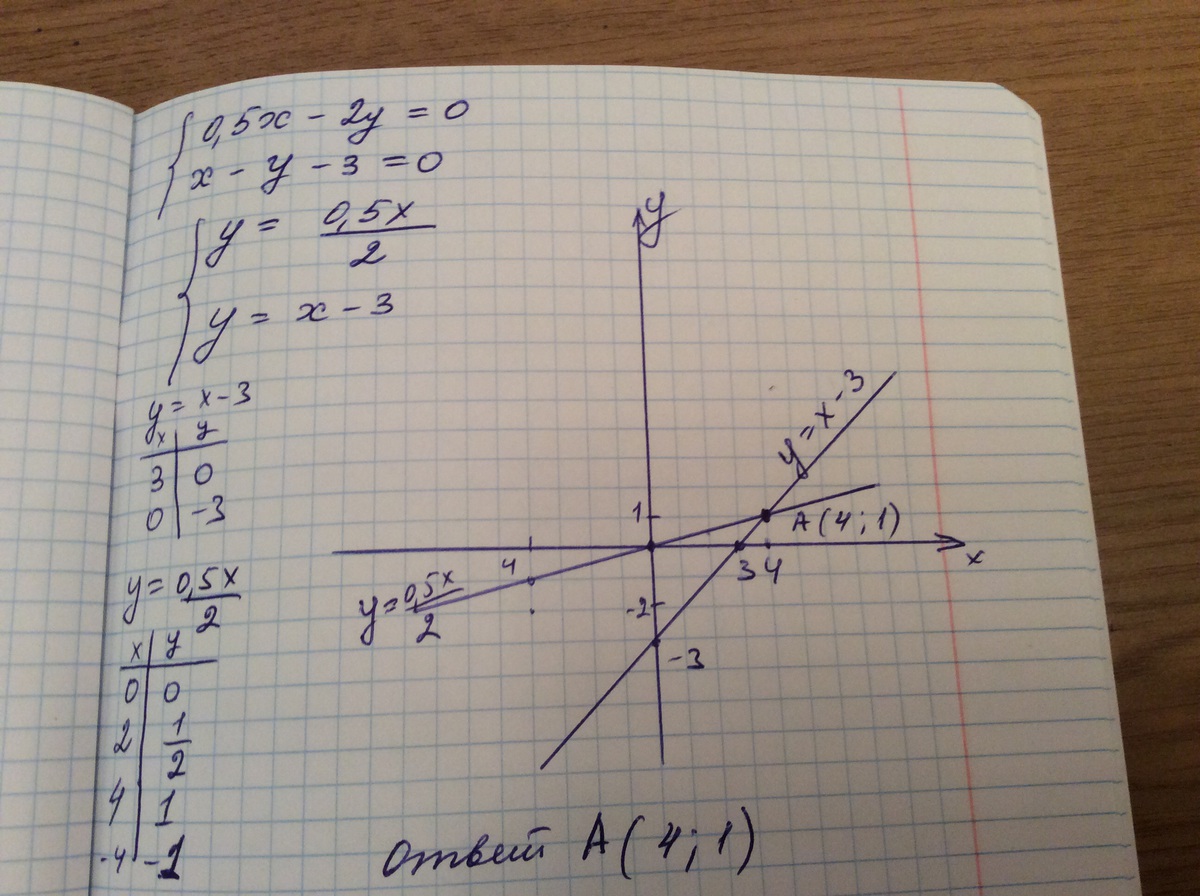 0,5x - 2y = 0
x - y - 3 = 0
y = 0,5x / 2
y = x - 3
y = x - 3
x y
3 0
0 -3
y = 0,5x / 2
x y
0 0
2 1/2
4 1
-4 -1
y
y = x - 3
1
A(4;1)
4
3 4
x
y = 0,5x / 2
-2
-3
Ответ A(4;1)